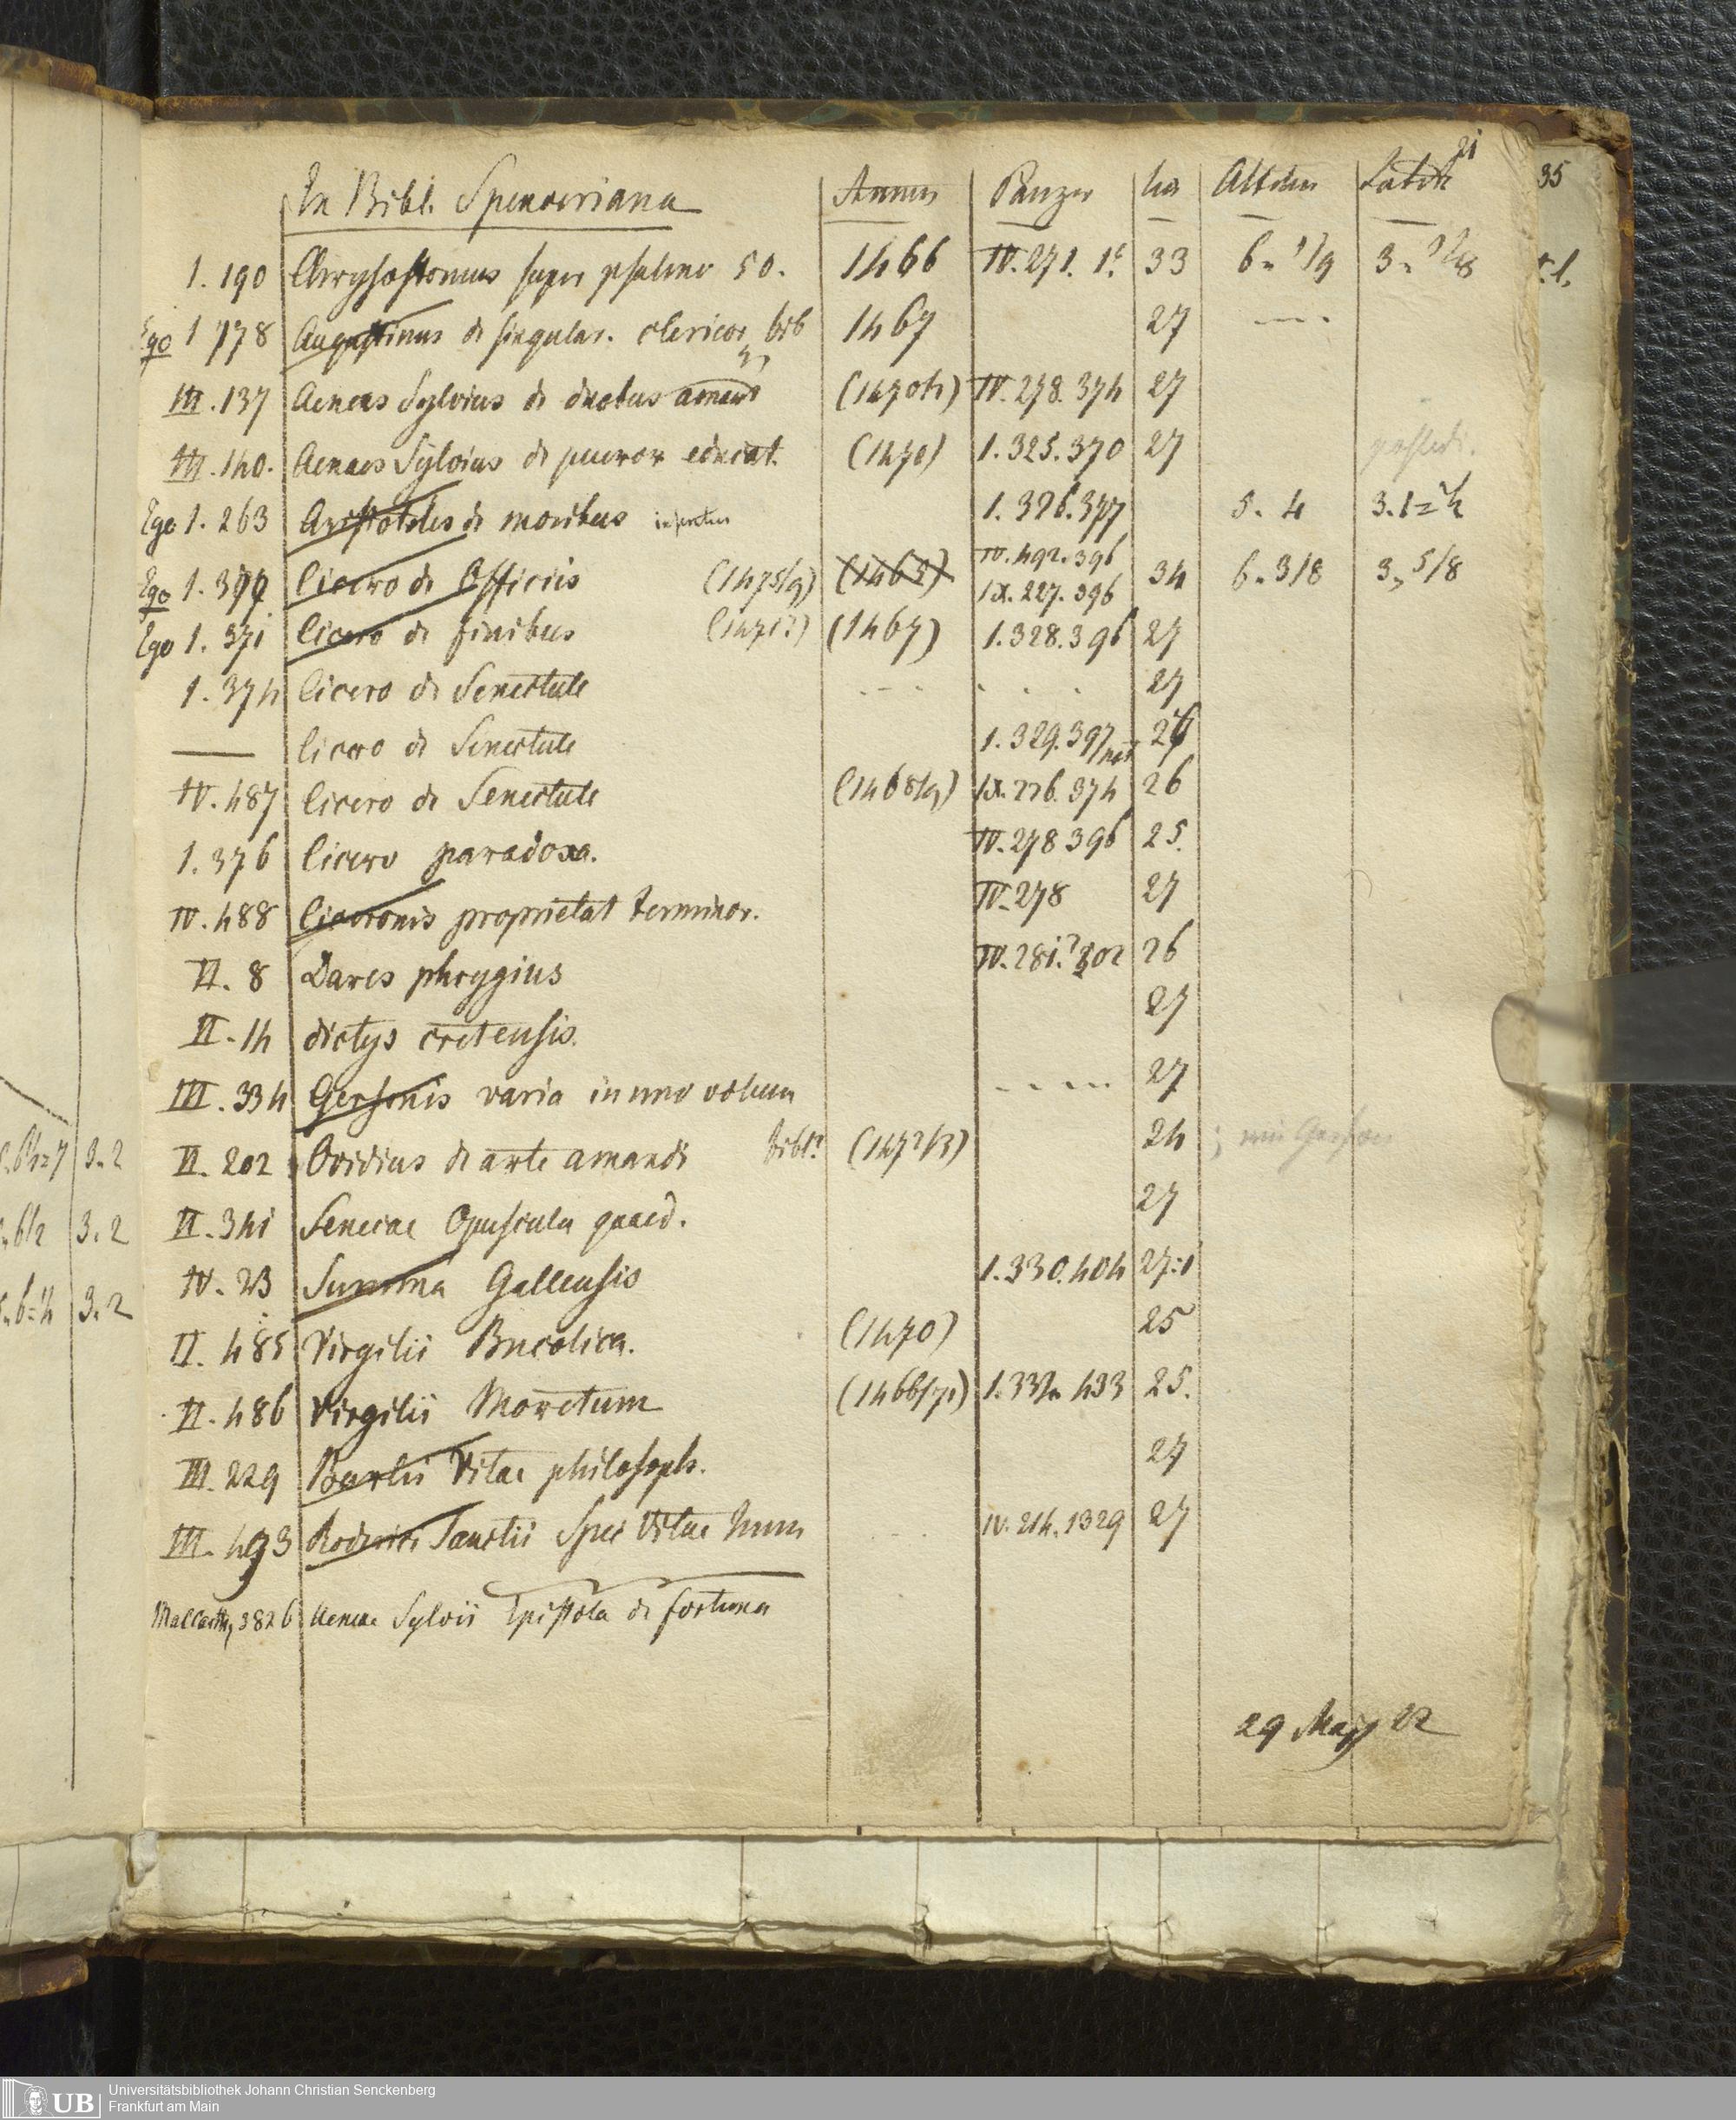 21
35
In Bibl. Spenceriana Annus Panzer lin Altitudo Latit
1. 190 Chrysostomus super psalmo 50. 1466 IV. 271. 33
Ego 1 178 Augustinus de singular. clericor 1467 27
III. 137 Aeneas Sylvius de duobus amant (1470/4) IV. 278. 374 27
III. 140. Aeneas Sylvius de pueror educat. (1470) 1. 325. 370 27
Ego 1. 263 Aristoteles de moribus 1. 326. 377 5. 4
IV. 492. 396
Ego 1. Cicero de Officiis (1475/9) (1465) IX. 227. 396 34 6. 3/8 3. 5/8
Ego 1. 371 Cicero de finibus (1471?) (1467) 1. 328. 396 27
1. 374 Cicero de Senectute - - - . . . 27
— Cicero de Senectute 1. 329. 397
IV. 487 Cicero de Senectute (1468/9) IX. 226. 374 26
1. 376 Cicero paradoxa. IV. 278 396 25.
IV. 488 Ciceronis proprietat terminor. IV. 278 27
II. 8 Dares phrygius IV. 281. 26
II. 14 dictys cretensis. 27
III. 334 Gersonis varia in uno volum - - - - 27
II. 202 Ovidius de arte amandi (1472/3) 24
II. 341 Senecae Opuscula quaed. 27
IV. 23 Summa Gallensis 1. 330. 404 27
II. 485 Virgilii Bucolica. (1470) 25
II. 486 Virgilii Moretum (1466/71) 433 25.
III. 229 Burlei Vitae philosoph. 27
III. 493 Roderici Sanctii Spec Vitae hum IV. 214. 1329 27
3826 Aeneae Sylvii Epistola de fortuna
29 May 22
3. 2
3. 2
3. 2
UB
Universitätsbibliothek Johann Christian Senckenberg
Frankfurt am Main